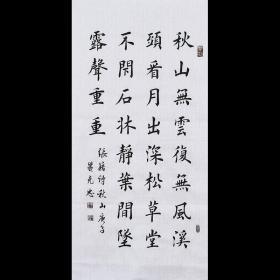 秋山無雲復無風溪
頭看月出深松草堂
不閇石牀靜葉間墜
露聲重重
張籍詩秋山庚子